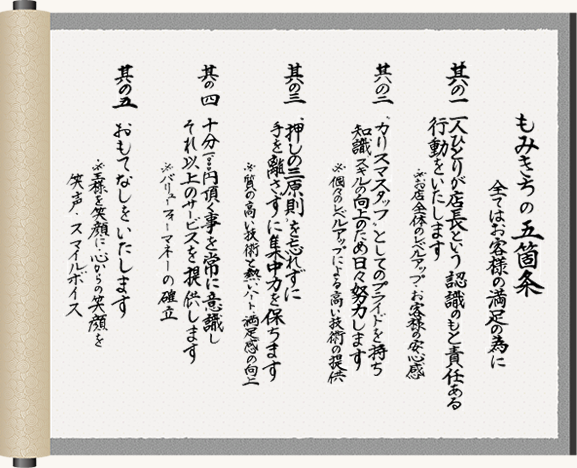 もみきちの五箇条
全てはお客様の満足の為に
其の一 一人ひとりが店長という認識のもと責任ある
行動をいたします
※お店全体のレベルアップ、お客様の安心感
其の二 “カリスマスタッフ”としてのプライドを持ち
知識、スキルの向上のため日々努力します
※個々のレベルアップによる高い技術の提供
其の三 “押しの三原則”を忘れずに
手を離さずに集中力を保ちます
※質の高い技術と熱いハート、満足感の向上
其の四 十分一〇〇〇円頂く事を常に意識し
それ以上のサービスを提供します
※バリューフォーマネーの確立
其の五 おもてなしをいたします
※王様を笑顔に、心からの笑顔を
笑声、スマイルボイス